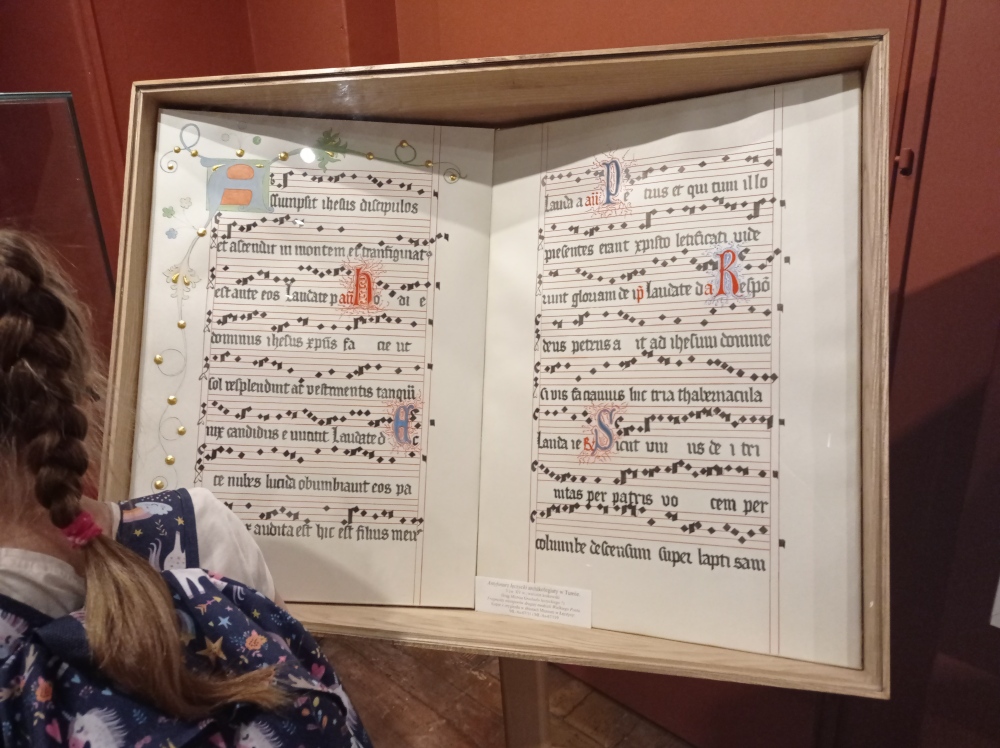 Assumpsit ihesus discipulos
et ascendit in montem et transfigurat
est ante eos Laudate p añ Ho di e
dominus ihesus xpūs fa cie ut
sol resplendunt at vestimentis tanquā
nix candidus e untait Laudate d Ec
ce nubes lucida obumbraunt eos pa
x audita est hic est filius meu
Lauda a añ Pe trus et qui cum illo
presentes erant xpisto letificati uide
runt gloriam de ip Laudate d a Respō
deus petrus a it ad ihesum domine
si vis faciamus hic tria thabernacula
Lauda ie Sicut unu us de i tri
nitas per patris vo cem per
columbe descensum super lapti sam